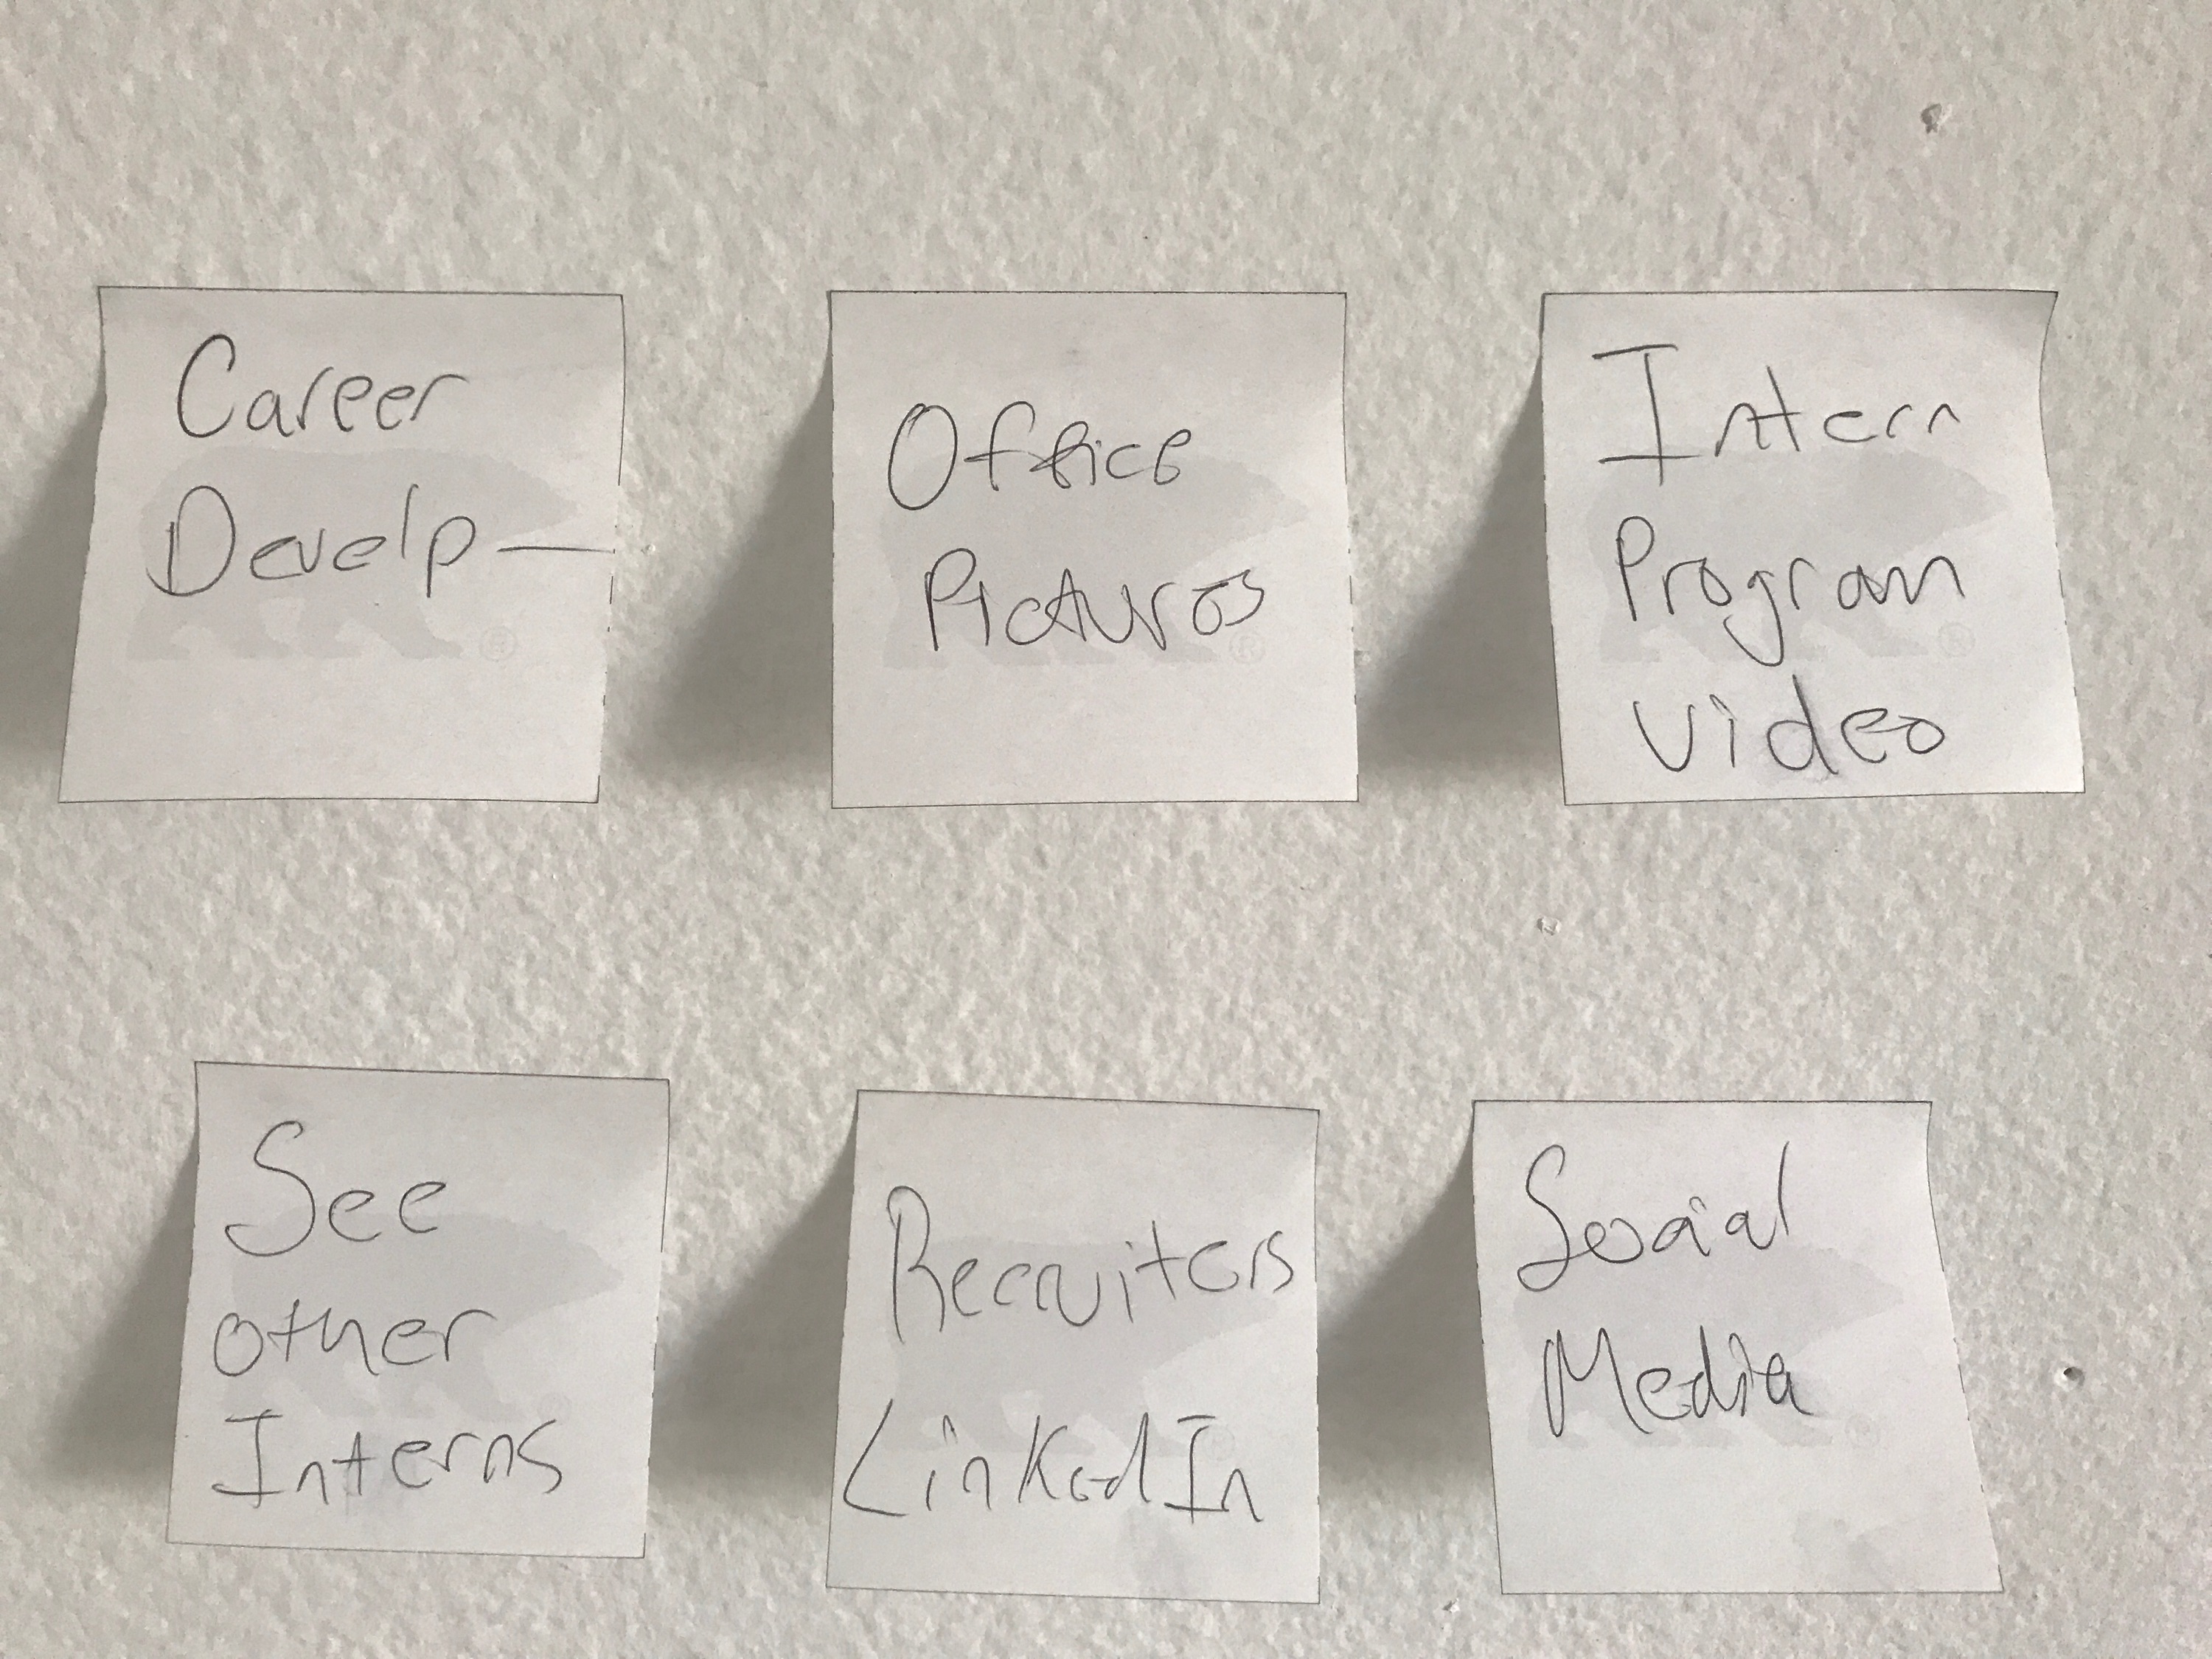 Career
Develp—
Office
Pictures
Intern
Program
Video
See
other
Interns
Recruiters
LinkedIn
Social
Media